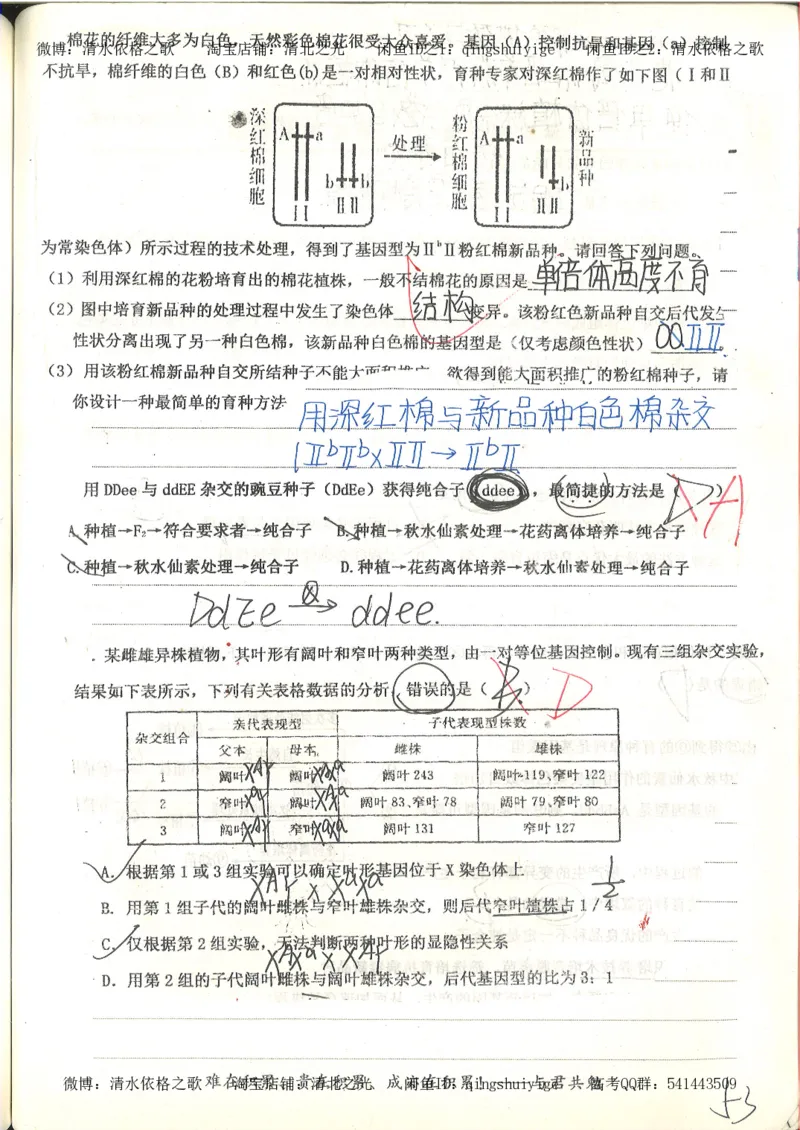 棉花的纤维大多为白色，天然彩色棉花很受大众喜爱。基因（A）控制抗旱和基因（a）控制
微博：清水依格之歌 淘宝店铺：清北之光 闲鱼ID之1：qingshuiyige 闲鱼ID之2：清水依格之歌
不抗旱，棉纤维的白色（B）和红色(b)是一对相对性状，育种专家对深红棉作了如下图（Ⅰ和Ⅱ
深红棉细胞 A a b b ⅠⅠ ⅡⅡ 处理 粉红棉细胞 A a b ⅠⅠ ⅡⅡ 新品种
为常染色体）所示过程的技术处理，得到了基因型为ⅡᵇⅡ粉红棉新品种。请回答下列问题。
（1）利用深红棉的花粉培育出的棉花植株，一般不结棉花的原因是 单倍体高度不育
（2）图中培育新品种的处理过程中发生了染色体 结构 变异。该粉红色新品种自交后代发生
性状分离出现了另一种白色棉，该新品种白色棉的基因型是（仅考虑颜色性状） ⅡⅡ。
（3）用该粉红棉新品种自交所结种子不能大面积推广，欲得到能大面积推广的粉红棉种子，请
你设计一种最简单的育种方法 用深红棉与新品种白色棉杂交
ⅡᵇⅡᵇ×ⅡⅡ→ⅡᵇⅡ
用DDee与ddEE杂交的豌豆种子（DdEe）获得纯合子（ddee），最简捷的方法是（D） A
A.种植→F₂→符合要求者→纯合子 B.种植→秋水仙素处理→花药离体培养→纯合子
C.种植→秋水仙素处理→纯合子 D.种植→花药离体培养→秋水仙素处理→纯合子
DdEe ⊗→ ddee.
．某雌雄异株植物，其叶形有阔叶和窄叶两种类型，由一对等位基因控制。现有三组杂交实验，
结果如下表所示，下列有关表格数据的分析，错误的是（B） D
杂交组合 亲代表现型 子代表现型株数
父本 母本 雌株 雄株
1 阔叶XAY 阔叶XAXa 阔叶243 阔叶119、窄叶122
2 窄叶XaY 阔叶XAXa 阔叶83、窄叶78 阔叶79、窄叶80
3 阔叶XAY 窄叶XaXa 阔叶131 窄叶127
A．根据第1或3组实验可以确定叶形基因位于X染色体上
XAY×XaXa 1/2
B．用第1组子代的阔叶雌株与窄叶雄株杂交，则后代窄叶植株占1/4
C．仅根据第2组实验，无法判断两种叶形的显隐性关系
XAXa×XAY
D．用第2组的子代阔叶雌株与阔叶雄株杂交，后代基因型的比为3：1
微博：清水依格之歌 淘宝店铺：清北之光 闲鱼ID：qingshuiyige 高考QQ群：541443509
53